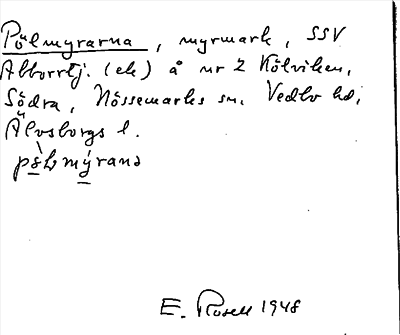 Pölmyrarna, myrmark, SSV
Abborrtj. (ek) å nr 2 Kölviken,
Södra, Nössemarks sn. Vedbo hd,
Älvsborgs l.
E. Rosell 1948